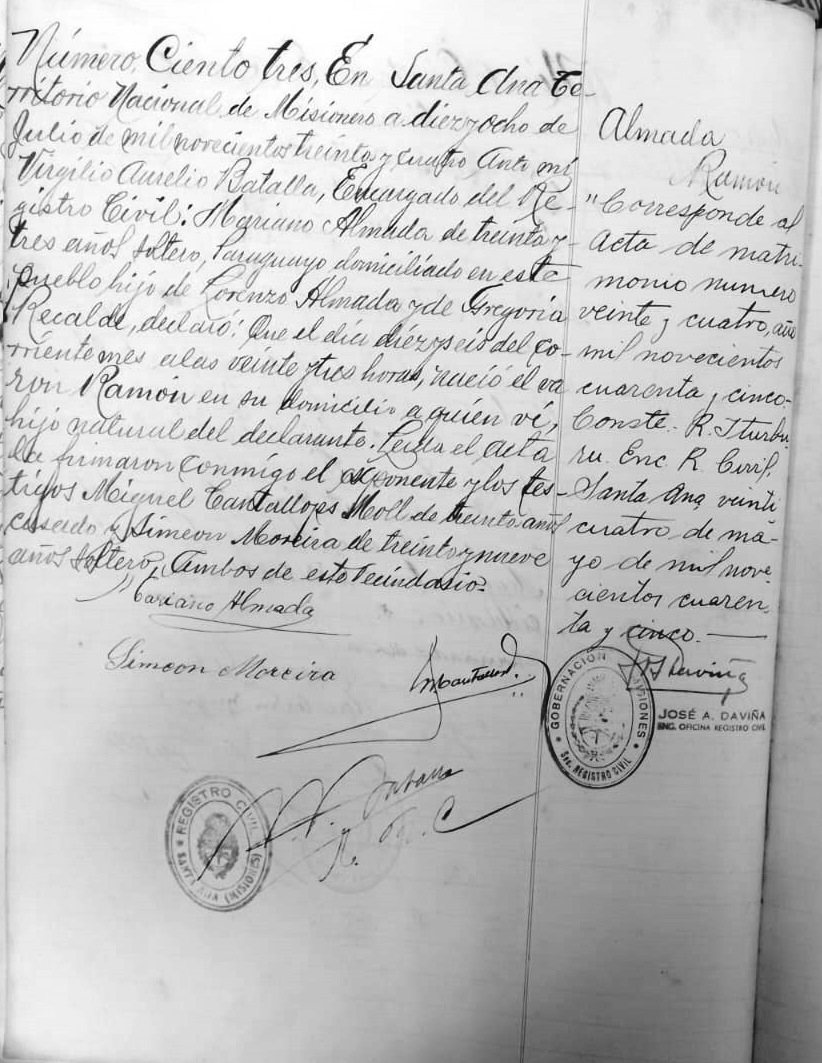 Número Ciento tres, En Santa Ana Te-
rritorio Nacional de Misionero a diez y ocho de
Julio de mil novecientos treinta y cuatro Ante mí
Virgilio Aurelio Batalla, Encargado del Re-
gistro Civil: Mariano Almada de treinta y
tres años soltero, Paraguayo domiciliado en este
pueblo hijo de Lorenzo Almada y de Gregoria
Recalde, declaró: Que el día diez y seis del co-
rriente mes a las veinte y tres horas, nació el va
ron Ramón en su domicilio a quién ví,
hijo natural del declarante. Leída el acta
la firmaron conmigo el exponente y los tes-
tigos Miguel Cantallops Moll de treinta años
casado y Simeon Moreira de treinta y nueve
años soltero, Ambos de este vecindario.
Mariano Almada
Simeon Moreira
REGISTRO CIVIL
SANTA ANA (MISIONES)
Almada
Ramón
"Corresponde al
Acta de matri-
monio numero
veinte y cuatro, año
mil novecientos
cuarenta y cinco-
Conste.- R. Iturbu
ru. Enc. R. Civil.
Santa Ana, veinti
cuatro de ma-
yo de mil nove-
cientos cuaren-
ta y cinco.
GOBERNACION MISIONES
REGISTRO CIVIL
JOSÉ A. DAVIÑA
ENC. OFICINA REGISTRO CIVIL